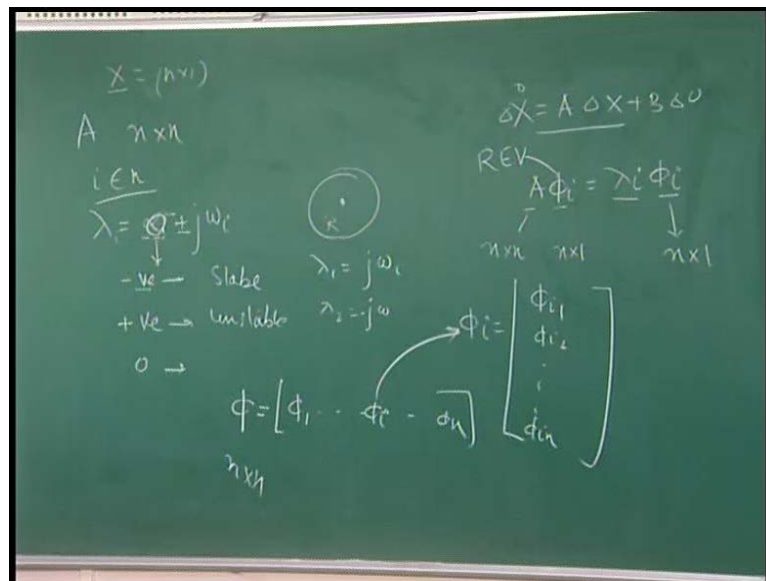 X = (n×1)
A n×n
i ∈ n
λi = σ ± jωi
-ve — Slabe
+ve → unslable
0 →
R
λ1 = jωi
λ2 = -jω
ΔẊ = A ΔX + B ΔU
REV
A ϕi = λi ϕi
n×n n×1 n×1
ϕ = [ϕ1 - - ϕi - ϕn]
n×n
ϕi = [
ϕi1
ϕi2
⋮
ϕin
]